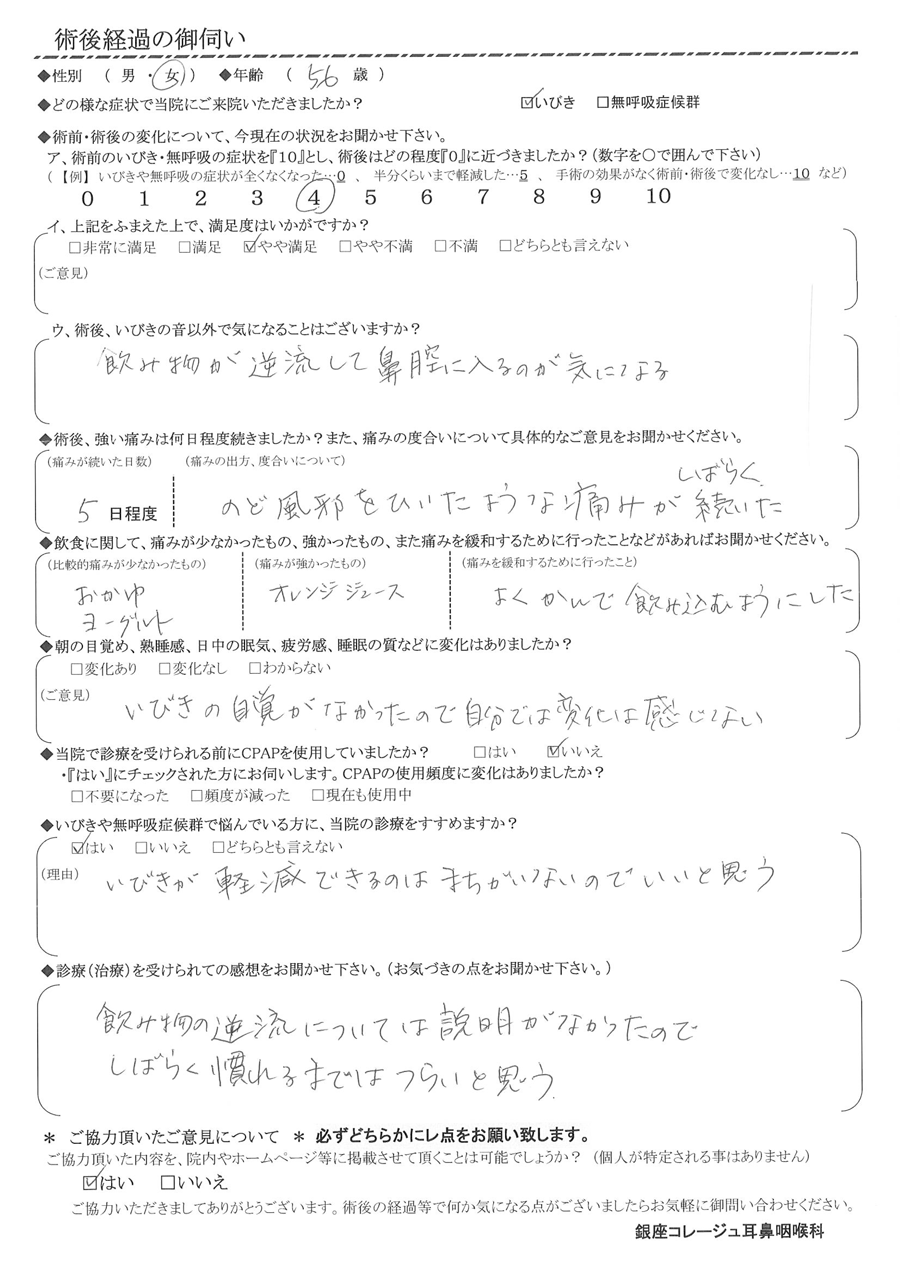 術後経過の御伺い
◆性別 （ 男 ・ 女 ） ◆年齢 （ 56 歳 ）
◆どの様な症状で当院にご来院いただきましたか？ ☑いびき □無呼吸症候群
◆術前・術後の変化について、今現在の状況をお聞かせ下さい。
ア、術前のいびき・無呼吸の症状を『10』とし、術後はどの程度『0』に近づきましたか？（数字を○で囲んで下さい）
（ 【例】 いびきや無呼吸の症状が全くなくなった…0 、 半分くらいまで軽減した…5 、 手術の効果がなく術前・術後で変化なし…10 など）
0 1 2 3 4 5 6 7 8 9 10
イ、上記をふまえた上で、満足度はいかがですか？
□非常に満足 □満足 ☑やや満足 □やや不満 □不満 □どちらとも言えない
（ご意見）
ウ、術後、いびきの音以外で気になることはございますか？
飲み物が逆流して鼻腔に入るのが気になる
◆術後、強い痛みは何日程度続きましたか？また、痛みの度合いについて具体的なご意見をお聞かせください。
（痛みが続いた日数） （痛みの出方、度合いについて）
しばらく
5 日程度 のど風邪をひいたような痛みが続いた
◆飲食に関して、痛みが少なかったもの、強かったもの、また痛みを緩和するために行ったことなどがあればお聞かせください。
（比較的痛みが少なかったもの） （痛みが強かったもの） （痛みを緩和するために行ったこと）
おかゆ オレンジジュース よくかんで飲み込むようにした
ヨーグルト
◆朝の目覚め、熟睡感、日中の眠気、疲労感、睡眠の質などに変化はありましたか？
□変化あり □変化なし □わからない
（ご意見）
いびきの自覚がなかったので自分では変化は感じてない
◆当院で診療を受けられる前にCPAPを使用していましたか？ □はい ☑いいえ
・『はい』にチェックされた方にお伺いします。CPAPの使用頻度に変化はありましたか？
□不要になった □頻度が減った □現在も使用中
◆いびきや無呼吸症候群で悩んでいる方に、当院の診療をすすめますか？
☑はい □いいえ □どちらとも言えない
（理由） いびきが軽減できるのはまちがいないのでいいと思う
◆診療（治療）を受けられての感想をお聞かせ下さい。（お気づきの点をお聞かせ下さい。）
飲み物の逆流については説明がなかったので
しばらく慣れるまではつらいと思う.
＊ ご協力頂いたご意見について ＊ 必ずどちらかにレ点をお願い致します。
ご協力頂いた内容を、院内やホームページ等に掲載させて頂くことは可能でしょうか？ （個人が特定される事はありません）
☑はい □いいえ
ご協力いただきましてありがとうございます。術後の経過等で何か気になる点がございましたらお気軽に御問い合わせください。
銀座コレージュ耳鼻咽喉科